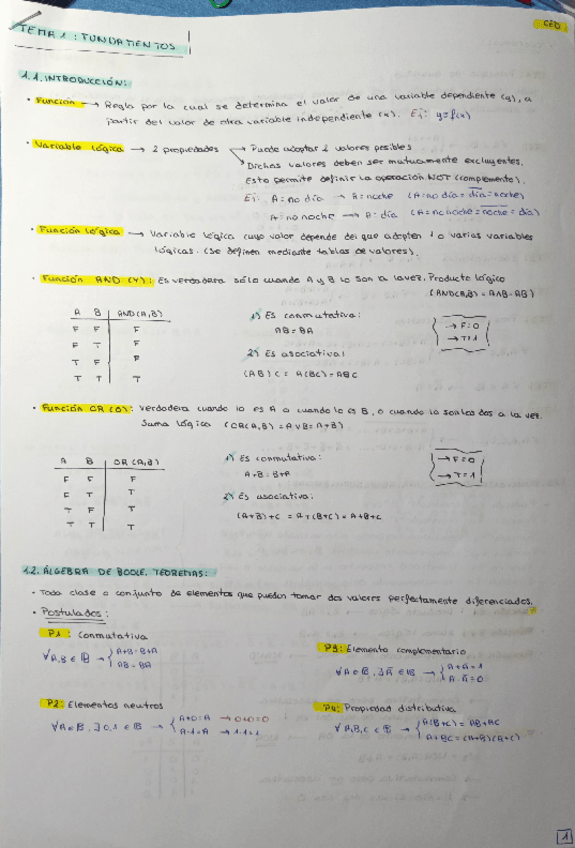 CED
TEMA 1: FUNDAMENTOS
1.1. INTRODUCCIÓN:
· Función → Regla por la cual se determina el valor de una variable dependiente (y), a
partir del valor de otra variable independiente (x). Ej: y=f(x)
· Variable lógica → 2 propiedades → Puede adoptar 2 valores posibles
→ Dichos valores deben ser mutuamente excluyentes.
Esto permite definir la operación NOT (complemento).
Ej: A = no día → A = noche (A = no día = d̅í̅a̅ = noche)
A = no noche → A = día (A = no noche = n̅o̅c̅h̅e̅ = día)
· Función lógica → Variable lógica cuyo valor depende del que adopten 1 o varias variables
lógicas. (Se definen mediante tablas de valores).
· Función AND (Y): Es verdadera sólo cuando A y B lo son a la vez. Producto lógico
(AND(A,B) = A∧B = AB)
A B AND(A,B)
F F F
F T F
T F F
T T T
1) Es conmutativa:
AB = BA
2) Es asociativa:
(AB)C = A(BC) = ABC
→ F=0
→ T=1
· Función OR (O): Verdadera cuando lo es A o cuando lo es B, o cuando lo son los dos a la vez.
Suma lógica (OR(A,B) = A∨B = A+B).
A B OR(A,B)
F F F
F T T
T F T
T T T
1) Es conmutativa:
A+B = B+A
2) Es asociativa:
(A+B)+C = A+(B+C) = A+B+C
→ F=0
→ T=1
1.2. ÁLGEBRA DE BOOLE. TEOREMAS:
· Toda clase o conjunto de elementos que pueden tomar dos valores perfectamente diferenciados.
· Postulados:
P1: Conmutativa
∀A,B ∈ B → { A+B = B+A
AB = BA
P2: Elementos neutros
∀A ∈ B, ∃ 0,1 ∈ B → { A+0 = A → 0+0=0
A·1 = A → 1·1=1
P3: Elemento complementario
∀A ∈ B, ∃ A̅ ∈ B → { A+A̅ = 1
A·A̅ = 0
P4: Propiedad distributiva
∀A,B,C ∈ B → { A(B+C) = AB+AC
A+BC = (A+B)(A+C)
1